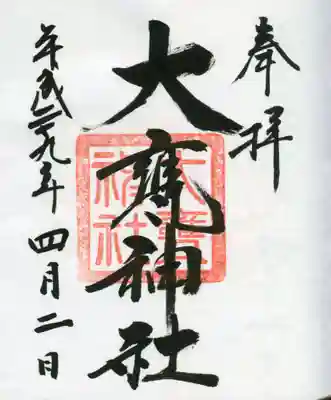 奉拝
大甕神社
大甕神社
平成廿九年四月二日